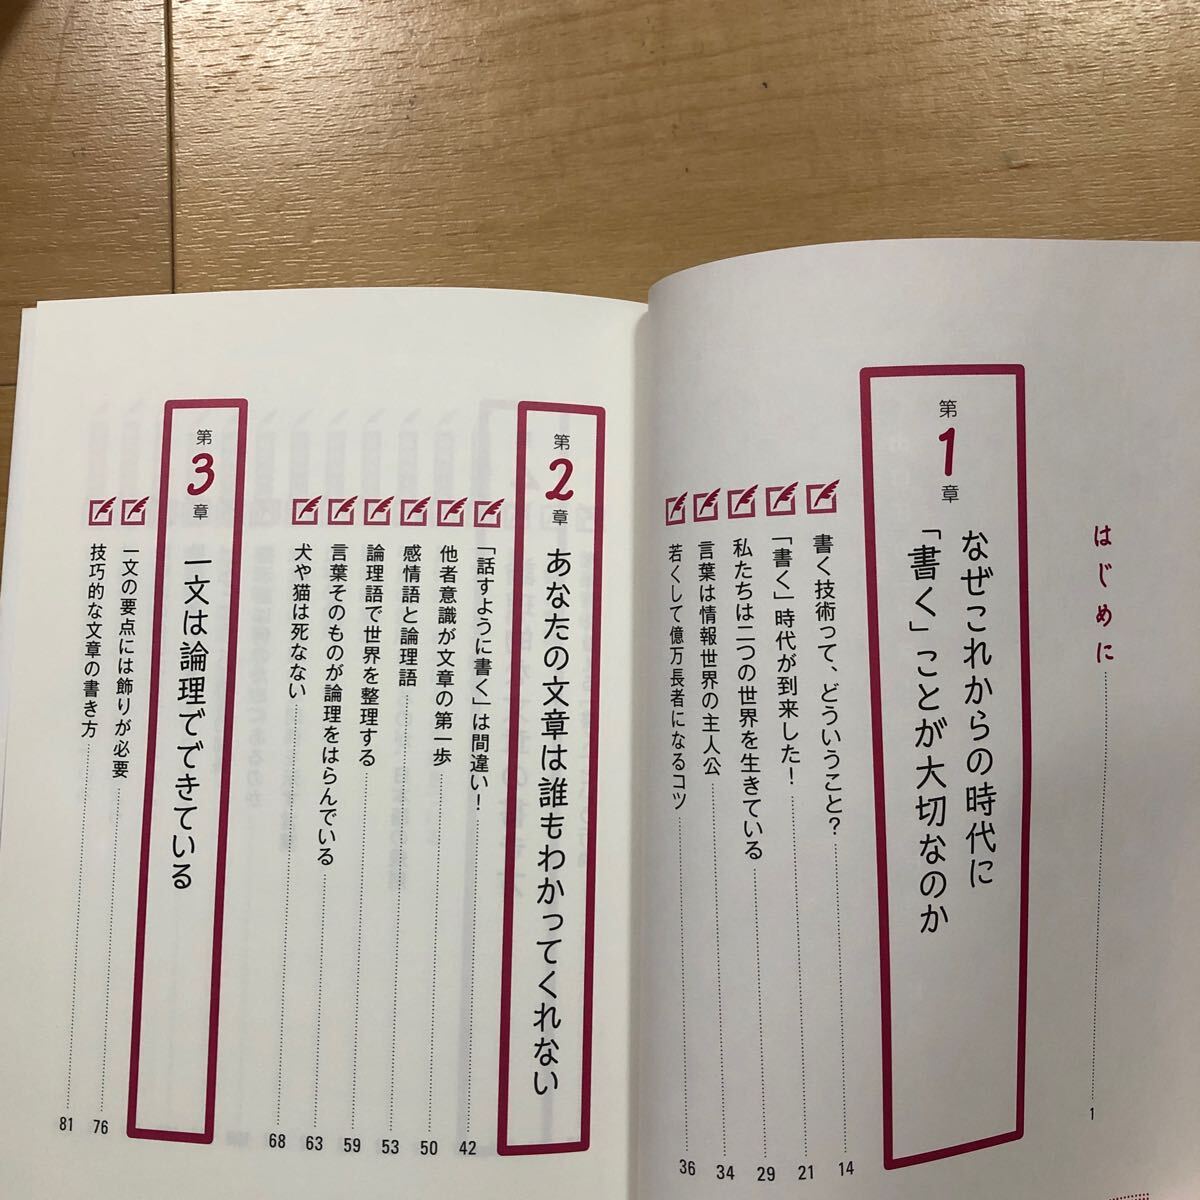 はじめに 1
第1章
なぜこれからの時代に
「書く」ことが大切なのか
書く技術って、どういうこと? 14
「書く」時代が到来した! 21
私たちは二つの世界を生きている 29
言葉は情報世界の主人公 34
若くして億万長者になるコツ 36
第2章
あなたの文章は誰もわかってくれない
「話すように書く」は間違い! 42
他者意識が文章の第一歩 50
感情語と論理語 53
論理語で世界を整理する 59
言葉そのものが論理をはらんでいる 63
犬や猫は死なない 68
第3章
一文は論理でできている
一文の要点には飾りが必要 76
技巧的な文章の書き方 81